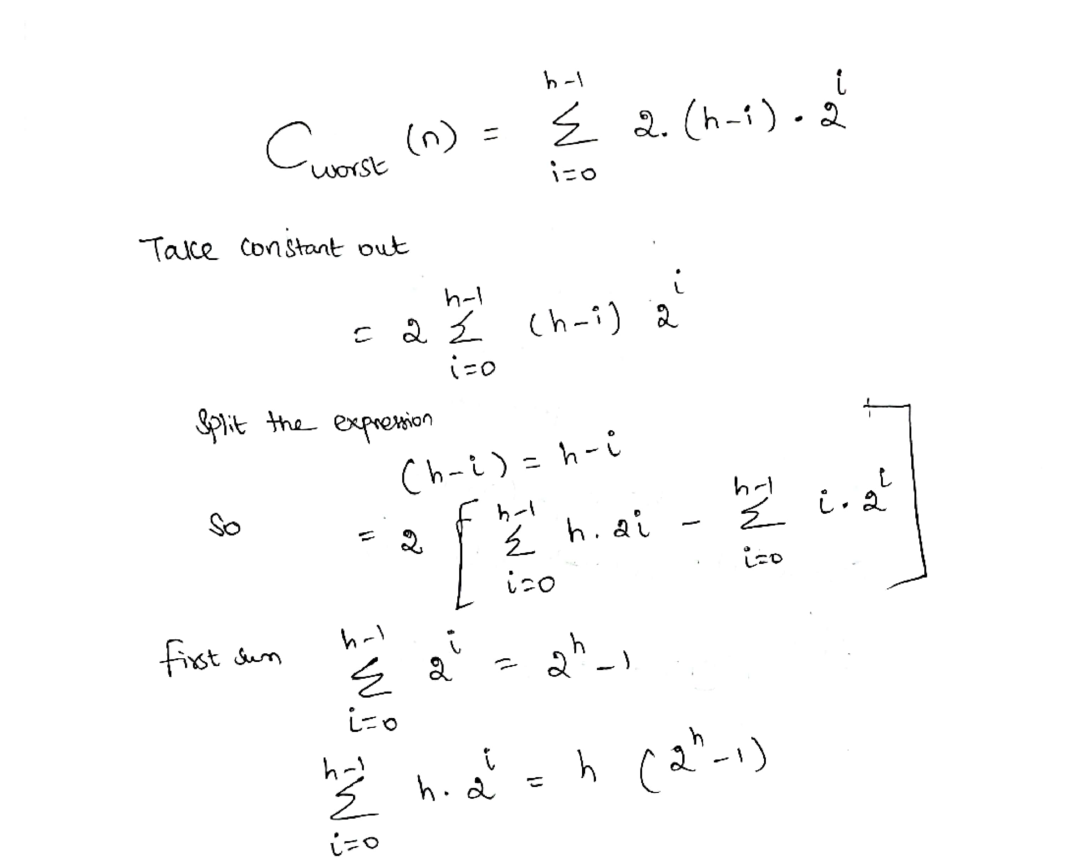 C_worst (n) = Σ_{i=0}^{h-1} 2. (h-i) . 2^i
Take constant out
= 2 Σ_{i=0}^{h-1} (h-i) 2^i
Split the expression
(h-i) = h-i
So = 2 [ Σ_{i=0}^{h-1} h. 2i - Σ_{i=0}^{h-1} i. 2^i ]
first sum Σ_{i=0}^{h-1} 2^i = 2^h -1
Σ_{i=0}^{h-1} h. 2^i = h (2^h -1)